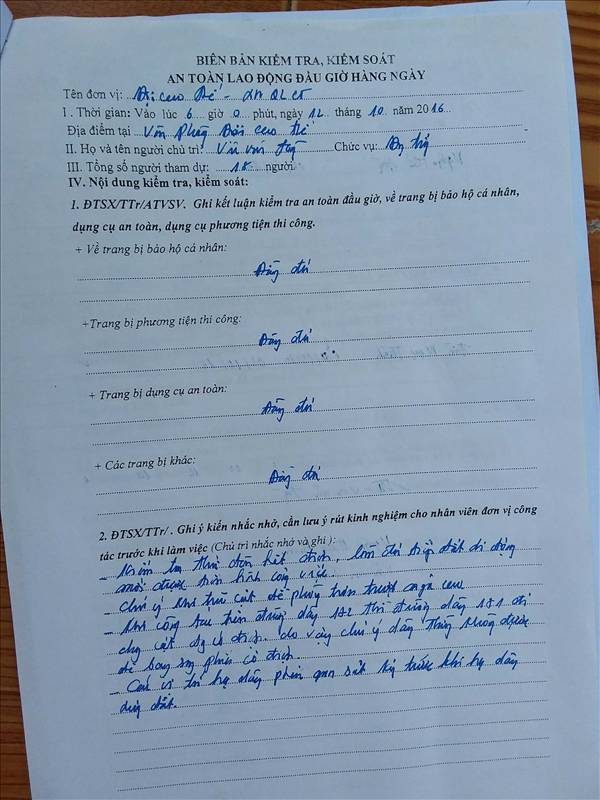 BIÊN BẢN KIỂM TRA, KIỂM SOÁT
AN TOÀN LAO ĐỘNG ĐẦU GIỜ HÀNG NGÀY
Tên đơn vị: Đội cao thế -
I. Thời gian: Vào lúc 6 giờ 0 phút, ngày 12 tháng 10 năm 2016
Địa điểm tại Văn Phòng Đội cao thế
II. Họ và tên người chủ trì: Vũ văn Chức vụ:
III. Tổng số người tham dự: 18 người
IV. Nội dung kiểm tra, kiểm soát:
1. ĐTSX/TTr/ATVSV. Ghi kết luận kiểm tra an toàn đầu giờ, về trang bị bảo hộ cá nhân,
dụng cụ an toàn, dụng cụ phương tiện thi công.
+ Về trang bị bảo hộ cá nhân:
Đầy đủ
+Trang bị phương tiện thi công:
Đầy đủ
+ Trang bị dụng cụ an toàn:
Đầy đủ
+ Các trang bị khác:
Đầy đủ
2. ĐTSX/TTr/ . Ghi ý kiến nhắc nhở, cần lưu ý rút kinh nghiệm cho nhân viên đơn vị công
tác trước khi làm việc (Chủ trì nhắc nhở và ghi ):
- điện hết điện, làm đủ tiếp đất di động
mới được tiến hành công việc.
- Chú ý khi trèo cột đề phòng trơn trượt ngã cao
- Khi công tác trên đường dây 182 thì đường dây 181 chỉ
cắt có điện. do vậy chú ý dây không được
để sang phía có điện.
- Các vị trí hạ dây phải quan sát kỹ trước khi hạ dây
đất.